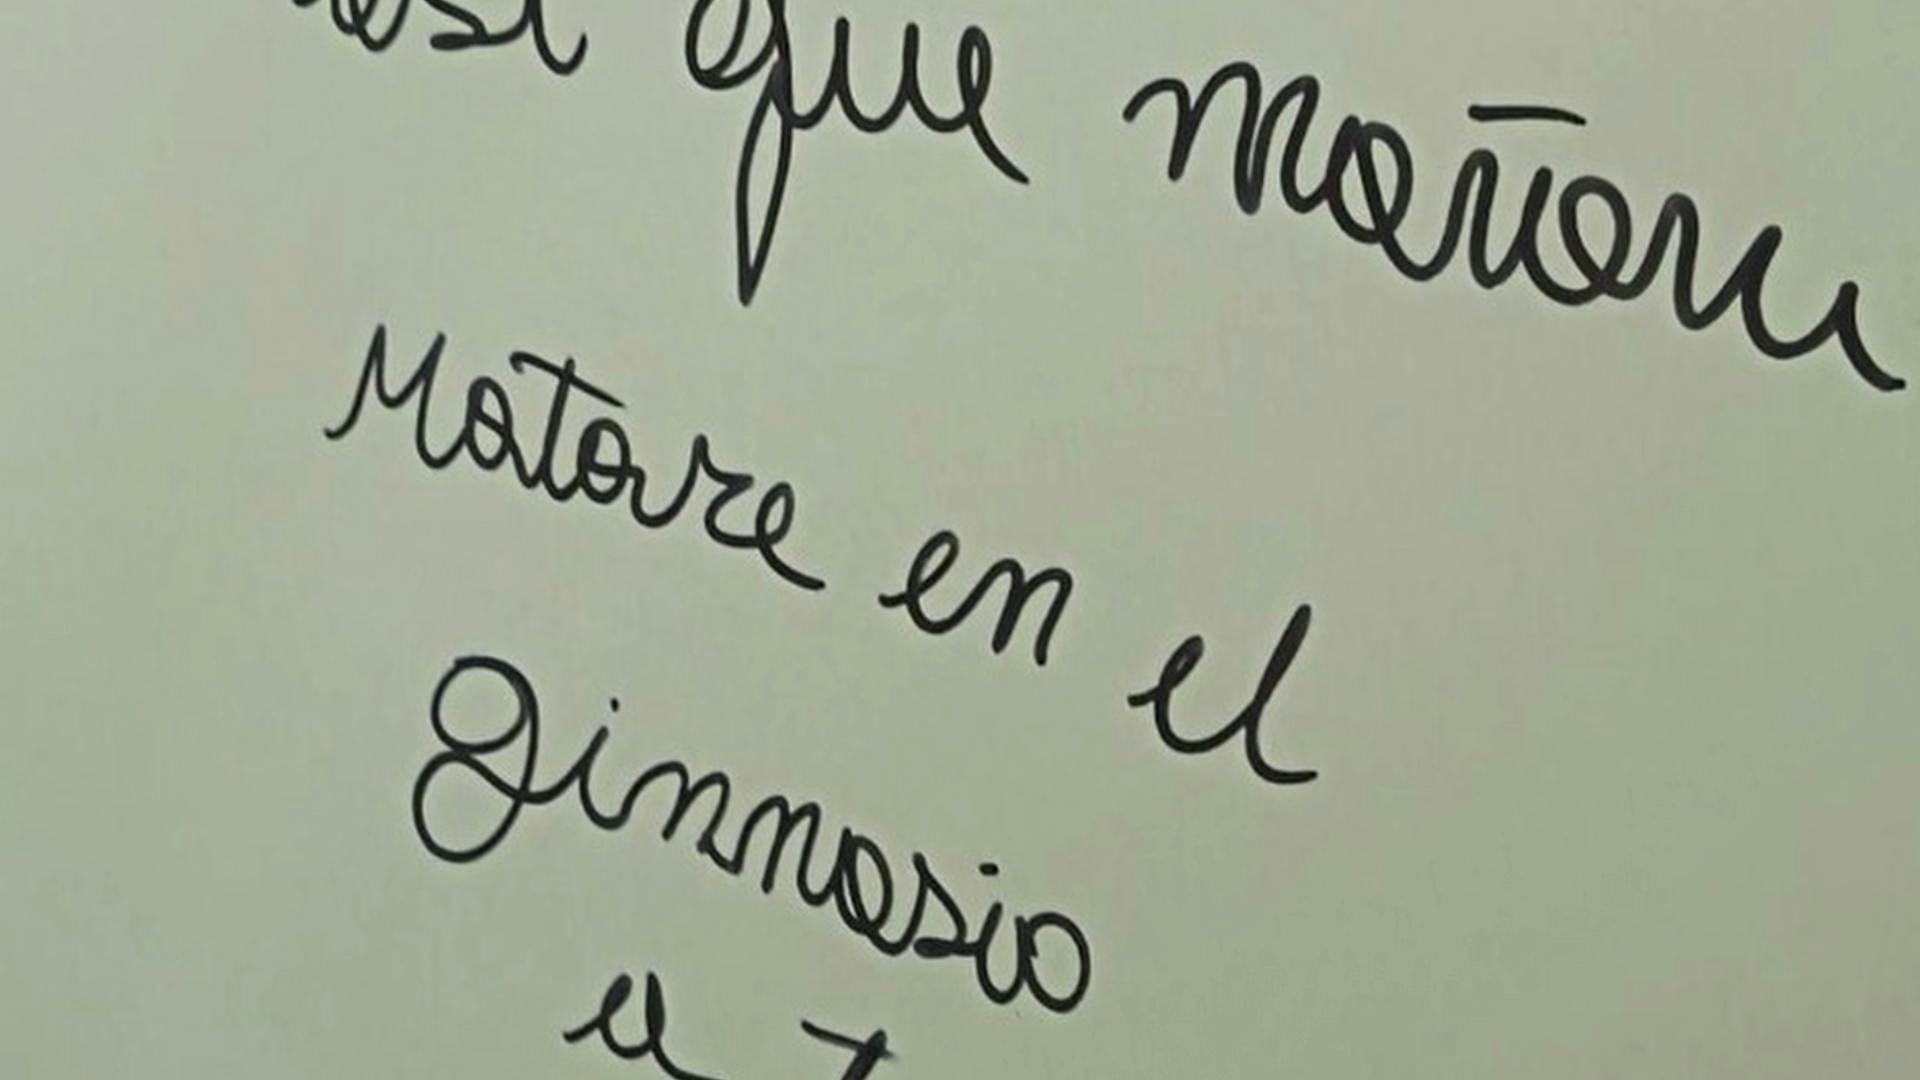 que mañana
Matare en el
ginnasio